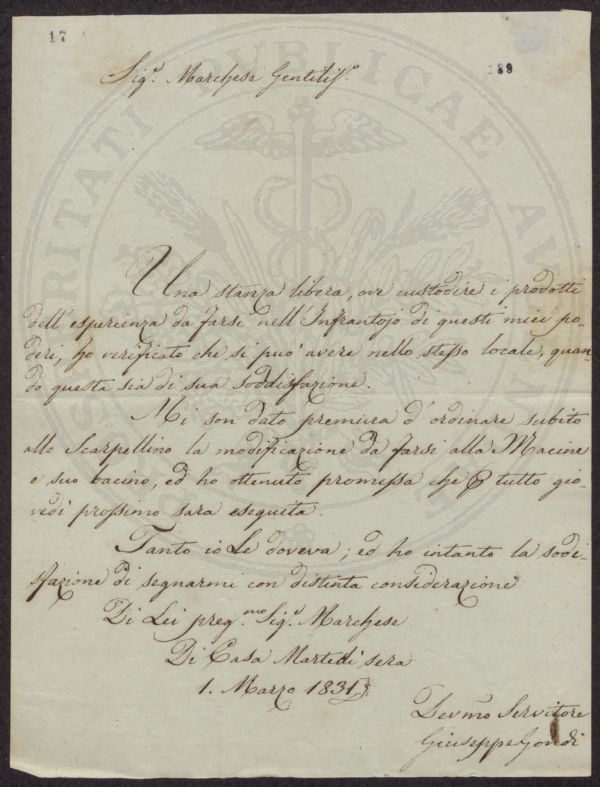 17
189
Sig.r Marchese Gentiliss.o
Una stanza libera, ove custodire i prodotti
dell'esperienza da farsi nell'Infrantojo di questi miei po-
deri, ho verificato che si può avere nello stesso locale, quan-
do questa sia di sua soddisfazione.
Mi son dato premura d'ordinare subito
allo Scarpellino la modificazione da farsi alla Macine
e suo bacino, ed ho ottenuto promessa che tutto gio-
vedì prossimo sarà eseguita.
Tanto io Le doveva; ed ho intanto la sodi-
sfazione di segnarmi con distinta considerazione
Di Lei preg.mo Sig.r Marchese
Di Casa Martedì sera
1. Marzo 1831
Devmo Servitore
Giuseppe Gondi
PUBLICAE